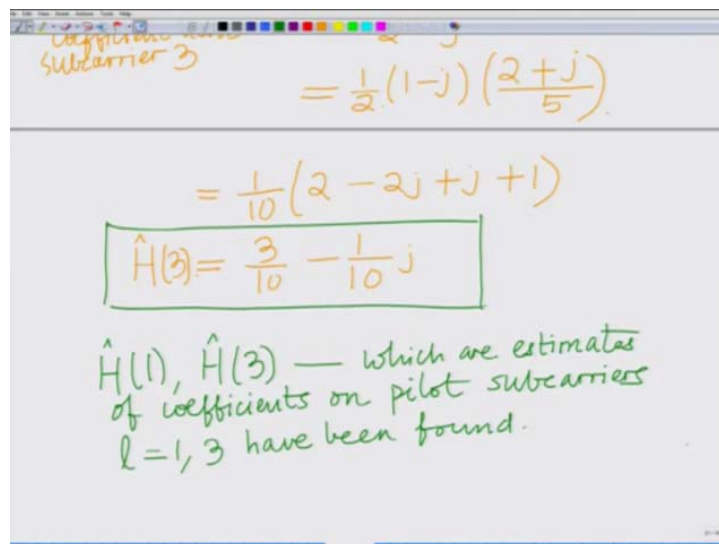 coefficient
subcarrier 3
2 j
= 1/2 (1-j) ( (2+j)/5 )
= 1/10 (2 - 2j + j + 1)
Ĥ(3) = 3/10 - 1/10 j
Ĥ(1), Ĥ(3) — which are estimates
of coefficients on pilot subcarriers
l = 1, 3 have been found.